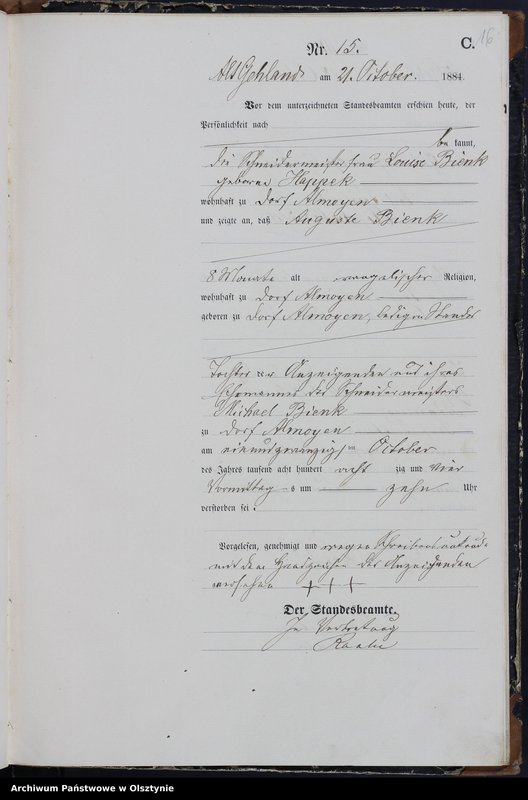 C. 16
Nr. 15.
Alt Gehland am 21. October. 1884.
Vor dem unterzeichneten Standesbeamten erschien heute, der
Persönlichkeit nach
be kannt,
die Schneidermeister frau Louise Bienk
geborne Happek
wohnhaft zu Dorf Almoyen
und zeigte an, daß Auguste Bienk
8 Monate alt evangelischer Religion,
wohnhaft zu Dorf Almoyen
geboren zu Dorf Almoyen, ledigen Standes
Tochter der Anzeigenden und ihres
Ehemannes des Schneidermeisters
Michael Bienk
zu Dorf Almoyen
am einundzwanzigsten October
des Jahres tausend acht hundert acht zig und vier
Vormittag s um zehn Uhr
verstorben sei.
Vorgelesen, genehmigt und wegen Schreibensunkunde
mit dem Handzeichen der Anzeigenden
versehen +++
Der Standesbeamte.
In Vertretung
Archiwum Państwowe w Olsztynie